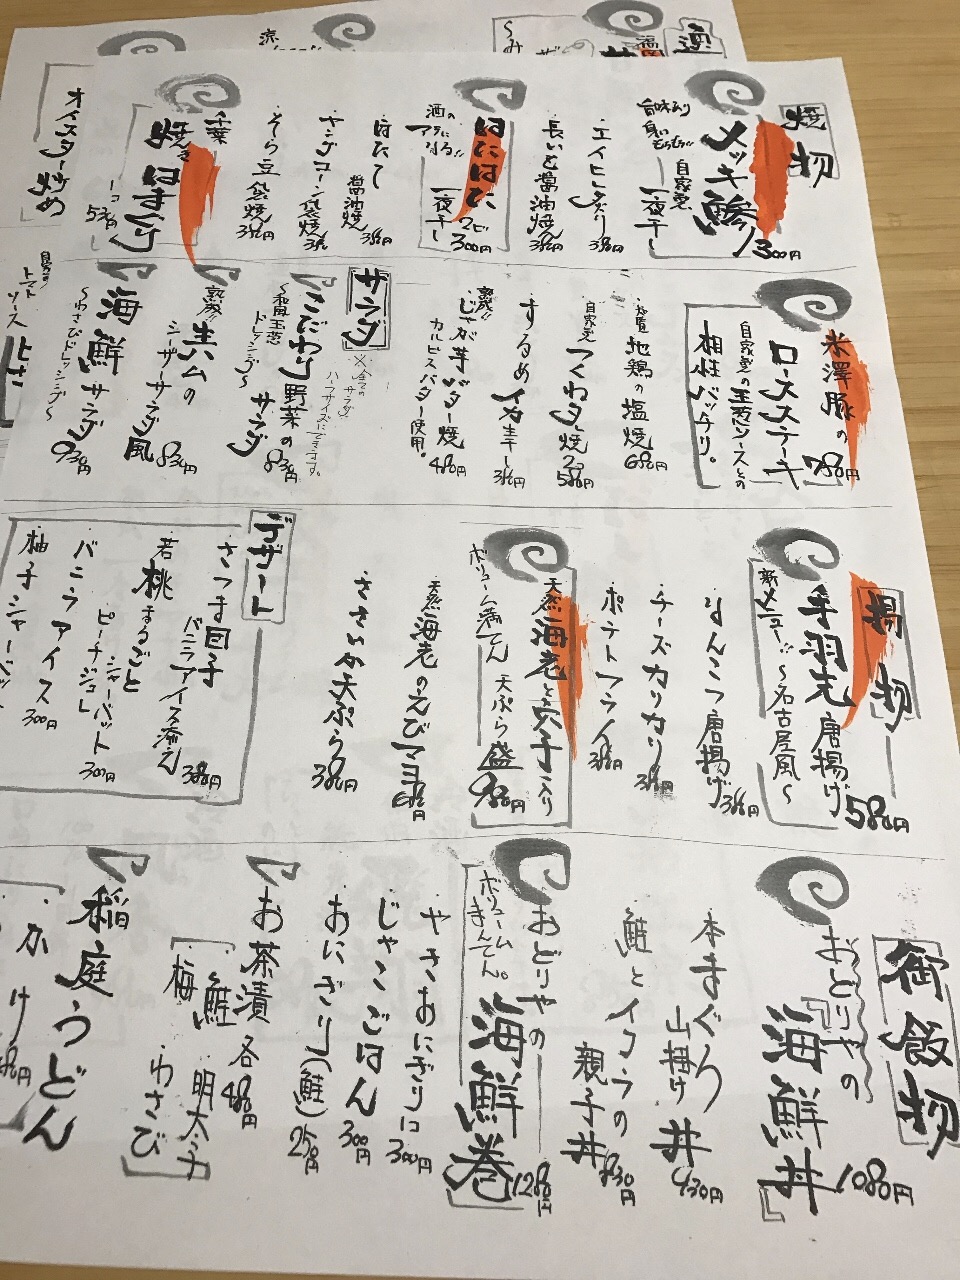 焼物
メッキ鯵
自家製
一夜干し
1300円
エイヒレ炙り
380円
長いも醤油焼
380円
はたはた
一夜干し
2ビ
300円
ほたて
醤油焼
380円
ヤングコーン袋焼
そら豆袋焼
380円
千葉
焼きはまぐり
1コ
530円
米澤豚の
ロースステーキ
780円
自家製の玉葱ソースとの
相性バッチリ。
地鶏の塩焼
680円
自家製
つくわタレ焼
580円
するめイカ丸干し
380円
熟成!!
じゃが芋バター焼
カルピスバター使用。
480円
サラダ
※全ての
サラダ
ハーフサイズにできます。
こだわり野菜の
サラダ
〜和風玉葱
ドレッシング〜
830円
熟成!!
生ハムの
シーザーサラダ風
830円
海鮮サラダ
〜わさびドレッシング〜
930円
揚物
手羽先唐揚げ
580円
新メニュー!!
〜名古屋風〜
なんこつ唐揚げ
380円
チーズカリカリ
380円
ポテトフライ
380円
天然海老と穴子入り
ボリューム満てん
天ぷら盛
980円
天然海老のえびマヨ
680円
ささみ天ぷら
380円
デザート
さつま団子
バニラアイス添え
380円
若桃まるごと
シャーベット
ピーチジュレ
300円
バニラアイス
300円
柚子シャーベット
御飯物
おどりやの
海鮮丼
1080円
本まぐろ
山掛け丼
930円
鮭とイクラの
親子丼
830円
おどりやの
海鮮巻
ボリューム
まんてん。
1280円
やきおにぎり2コ
300円
じゃこごはん
300円
おにぎり(鮭)
250円
お茶漬
各480円
鮭
明太子
梅
わさび
稲庭うどん
かけ
オイスター炒め